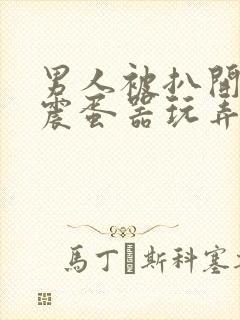 男人被扒開
震蛋器玩弄
馬丁斯科塞